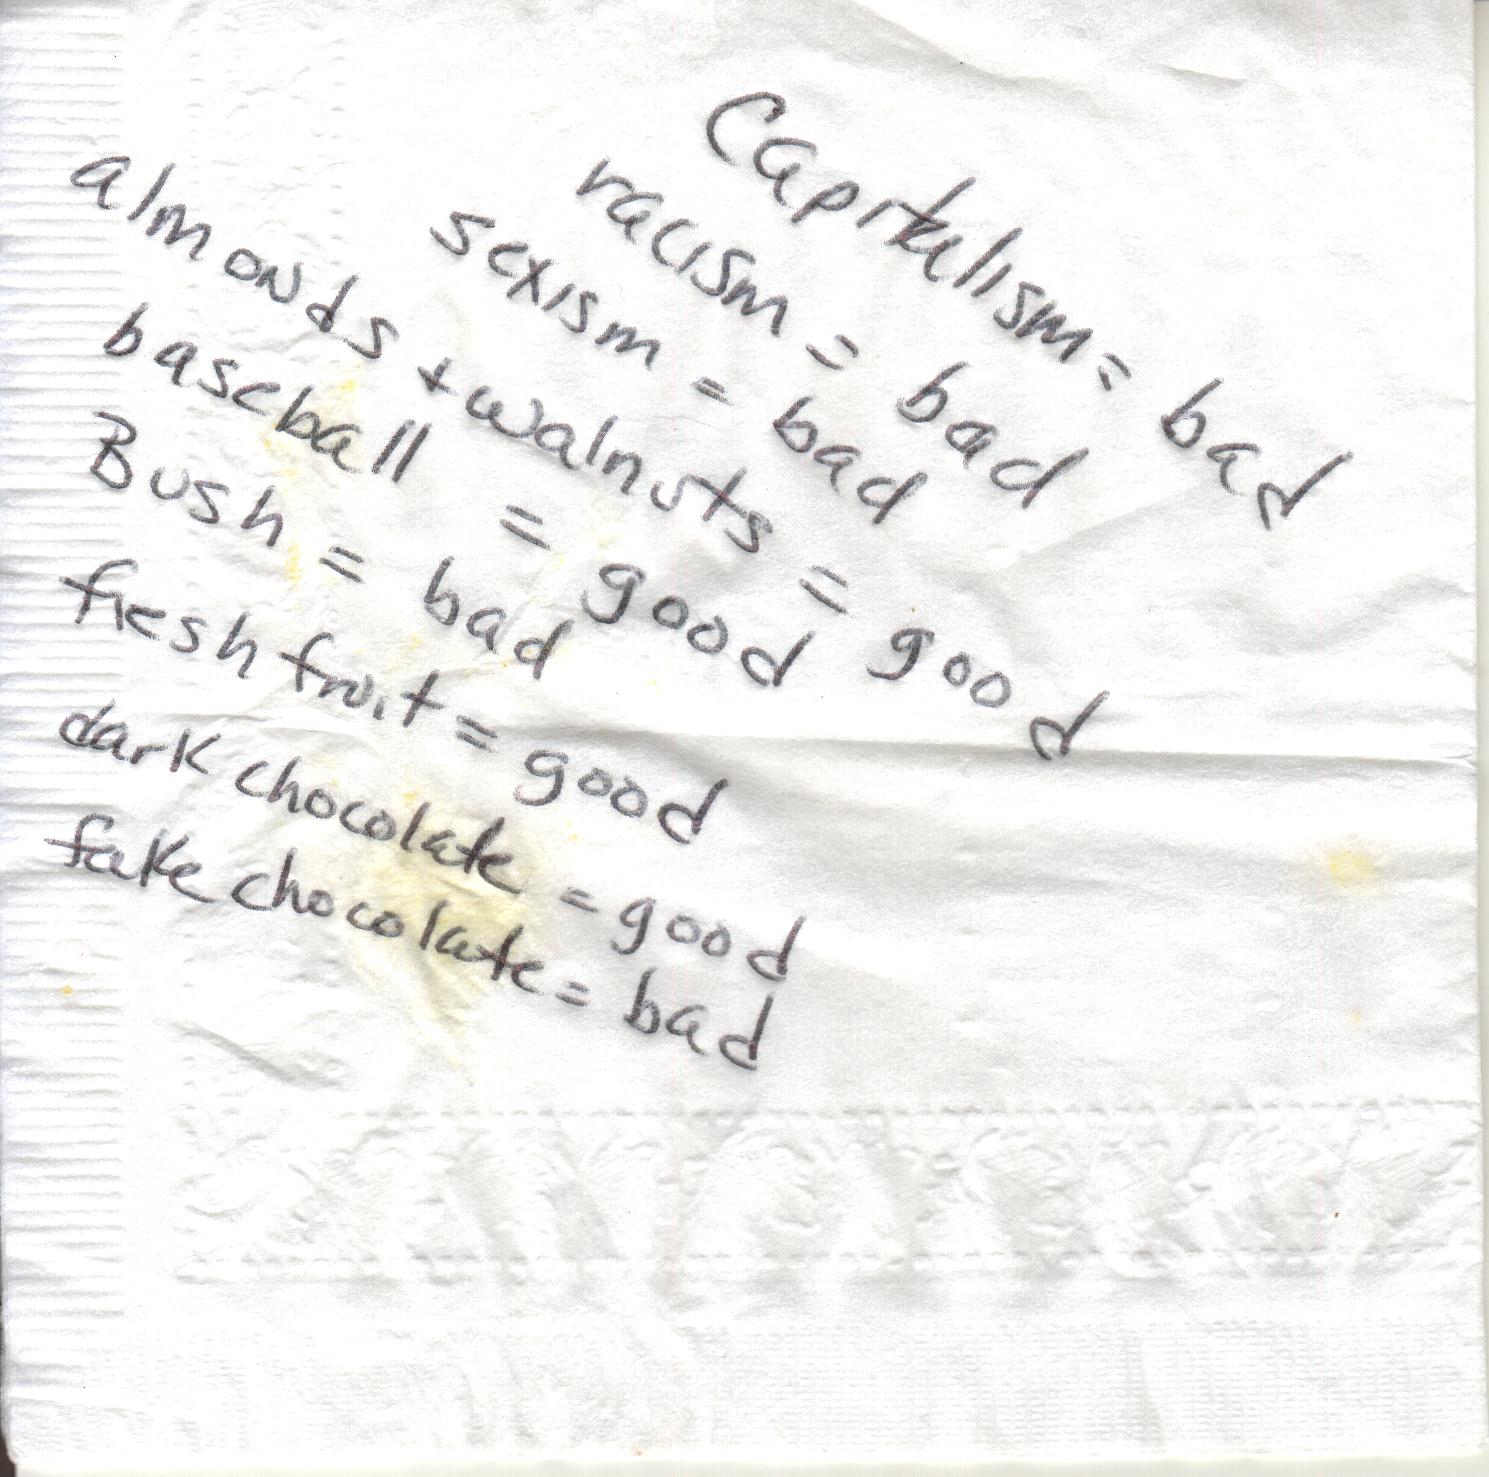 Capitalism = bad
racism = bad
sexism = bad
almonds + walnuts = good
baseball = good
Bush = bad
fresh fruit = good
dark chocolate = good
fake chocolate = bad